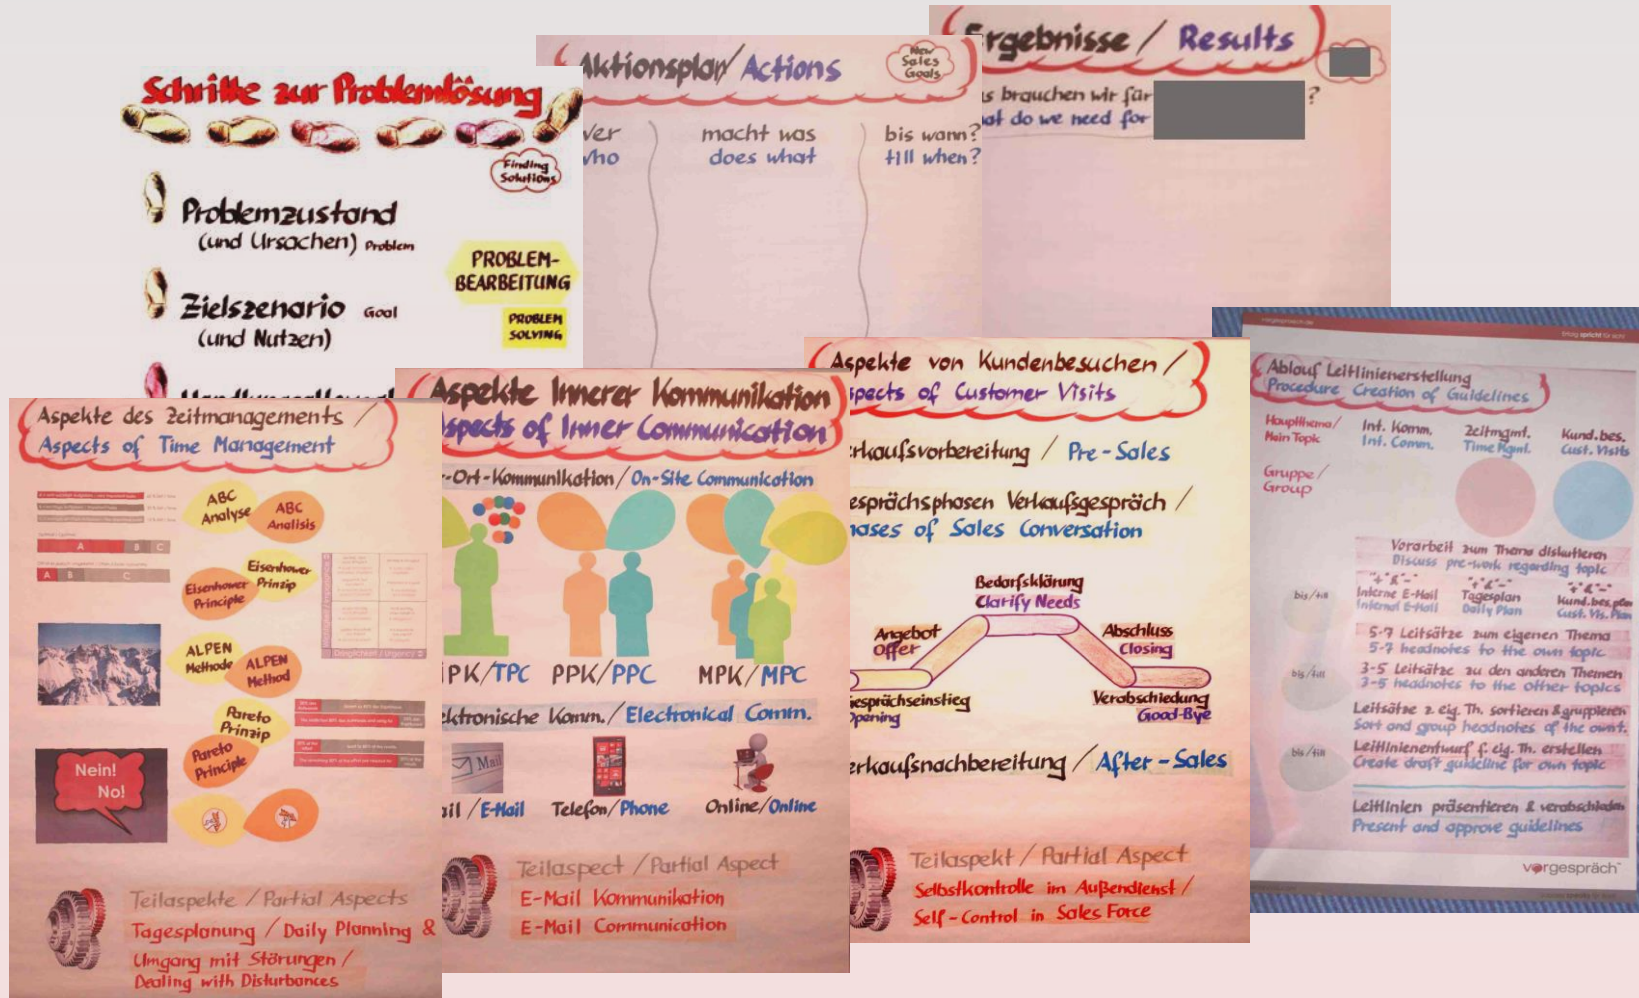 Schritte zur Problemlösung
Finding
Solutions
Problemzustand
(und Ursachen) Problem
PROBLEM-
BEARBEITUNG
Zielszenario Goal
(und Nutzen)
PROBLEM
SOLVING
Aktionsplan/ Actions
New
Sales
Goals
macht was
does what
bis wann?
till when?
Ergebnisse / Results
brauchen wir für ?
do we need for
Aspekte des Zeitmanagements /
Aspects of Time Management
ABC
Analyse
ABC
Analisis
Eisenhower
Prinzip
Eisenhower
Principle
ALPEN
Methode
ALPEN
Method
Pareto
Prinzip
Pareto
Principle
A B C
A B C
Dringlichkeit / Urgency
Nein!
No!
Teilaspekte / Partial Aspects
Tagesplanung / Daily Planning &
Umgang mit Störungen /
Dealing with Disturbances
Aspekte Innerer Kommunikation
Aspects of Inner Communication
-Ort-Kommunikation / On-Site Communication
PK/TPC PPK/PPC MPK/MPC
ktronische Komm. / Electronical Comm.
Mail
ail / E-Mail Telefon/Phone Online/Online
Teilaspect / Partial Aspect
E-Mail Kommunikation
E-Mail Communication
Aspekte von Kundenbesuchen /
spects of Customer Visits
rkaufsvorbereitung / Pre-Sales
esprächsphasen Verkaufsgespräch /
ases of Sales Conversation
Bedarfsklärung
Clarify Needs
Angebot
Offer
Abschluss
Closing
esprächseinstieg
pening
Verabschiedung
Good-Bye
erkaufsnachbereitung / After-Sales
Teilaspekt / Partial Aspect
Selbstkontrolle im Außendienst /
Self-Control in Sales Force
vorgespräch.de
Erfolg spricht für sich!
Ablauf Leitlinienerstellung
Procedure Creation of Guidelines
Hauptthema/
Main Topic
Int. Komm.
Int. Comm.
Zeitmgmt.
Time Mgmt.
Kund.bes.
Cust. Visits
Gruppe /
Group
Vorarbeit zum Thema diskutieren
Discuss pre-work regarding topic
bis/till
"+"&"-" "+"&"-" "+"&"-"
Interne E-Mail
Internal E-Mail
Tagesplan
Daily Plan
Kund.bes.plan
Cust. Vis. Plan
5-7 Leitsätze zum eigenen Thema
5-7 headnotes to the own topic
bis/till
3-5 Leitsätze zu den anderen Themen
3-5 headnotes to the other topics
Leitsätze z. eig. Th. sortieren & gruppieren
Sort and group headnotes of the own t.
bis/till
Leitlinienentwurf f. eig. Th. erstellen
Create draft guideline for own topic
Leitlinien präsentieren & verabschieden
Present and approve guidelines
vorgespräch